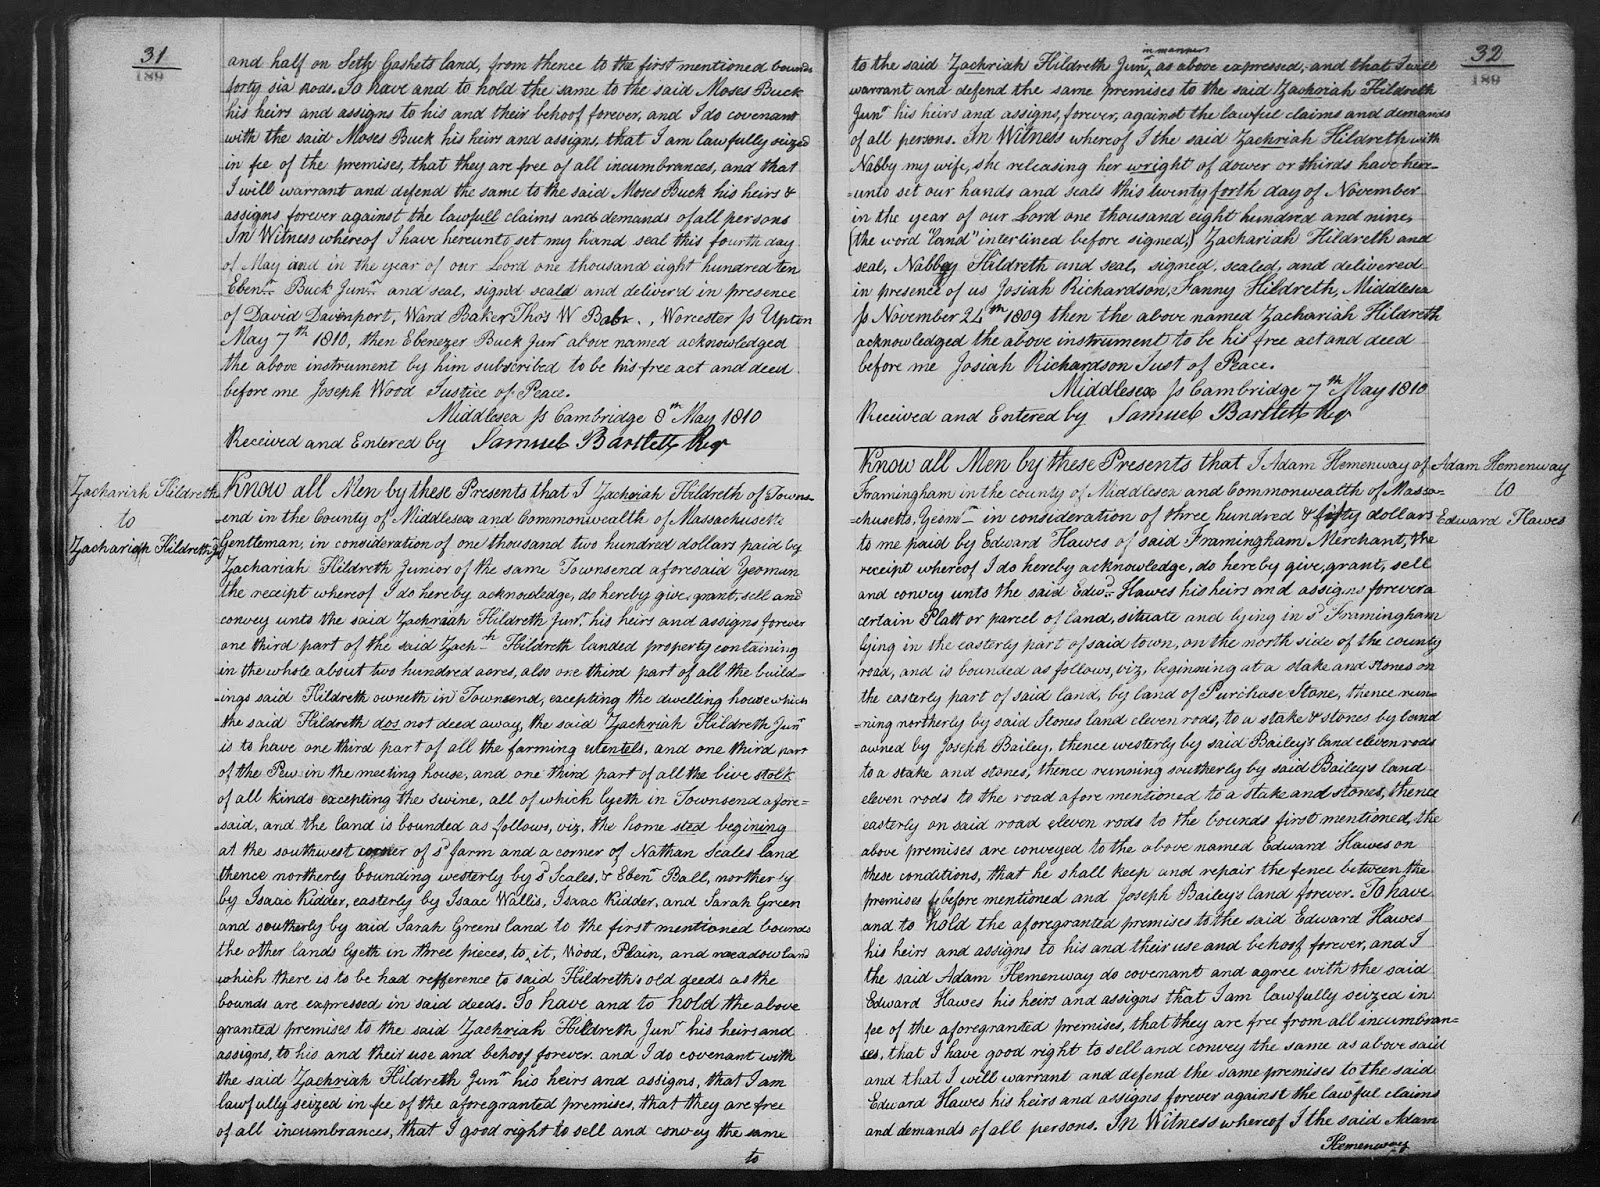 31
189
and half on Seth Gaskets land, from thence to the first mentioned bounds
forty six rods. To have and to hold the same to the said Moses Buck
his heirs and assigns to his and their behoof forever, and I do covenant
with the said Moses Buck his heirs and assigns, that I am lawfully seized
in fee of the premises, that they are free of all incumbrances, and that
I will warrant and defend the same to the said Moses Buck his heirs &
assigns forever against the lawfull claims and demands of all persons
In Witness whereof I have hereunto set my hand seal this fourth day
of May and in the year of our Lord one thousand eight hundred ten
Ebenr. Buck Junr. and seal, signd seald and deliver'd in presence
of David Davenport, Ward Baker, Thos W , Worcester Ss Upton
May 7th 1810, then Ebenezer Buck Junr above named acknowledged
the above instrument by him subscribed to be his free act and deed
before me Joseph Wood Justice of Peace.
Middlesex Ss Cambridge 8th May 1810
Received and Entered by Samuel Bartlett Regr
Zachariah Hildreth
to
Zachariah Hildreth Jr
Know all Men by these Presents that I Zachriah Hildreth of Towns-
=end in the County of Middlesex and Commonwealth of Massachusetts
Gentleman, in consideration of one thousand two hundred dollars paid by
Zachariah Hildreth Junior of the same Townsend aforesaid Yeoman
the receipt whereof I do hereby acknowledge, do hereby give, grant, sell and
convey unto the said Zachriah Hildreth Junr. his heirs and assigns forever
one third part of the said Zachh Hildreth landed property containing
in the whole about two hundred acres, also one third part of all the build=
=ings said Hildreth owneth in Townsend, excepting the dwelling house which
the said Hildreth dos not deed away, the said Zachriah Hildreth Junr
is to have one third part of all the farming utentels, and one third part
of the Pew in the meeting house, and one third part of all the live stolk
of all kinds excepting the swine, all of which lyeth in Townsend afore=
=said, and the land is bounded as follows, viz. the home sted begining
at the southwest corner of sd farm and a corner of Nathan Scales land
thence northerly bounding westerly by sd Scales, & Ebenr Ball, northerly
by Isaac Kidder, easterly by Isaac Wallis, Isaac Kidder, and Sarah Green
and southerly by said Sarah Greens land to the first mentioned bounds
the other lands lyeth in three pieces, to, it, Wood, Plain, and meadow land
which there is to be had refference to said Hildreth's old deeds as the
bounds are expressed in said deeds. To have and to hold the above
granted premises to the said Zachriah Hildreth Junr his heirs and
assigns, to his and their use and behoof forever. and I do covenant with
the said Zachriah Hildreth Junr his heirs and assigns, that I am
lawfully seized in fee of the aforegranted premises, that they are free
of all incumbrances, that I good right to sell and convey the same
to
32
189
to the said Zachriah Hildreth Junr, in manner as above expressed, and that I will
warrant and defend the same premises to the said Zachriah Hildreth
Junr his heirs and assigns, forever, against the lawful claims and demands
of all persons. In Witness whereof I the said Zachriah Hildreth with
Nabby my wife, she releasing her wright of dower or thirds have here=
=unto set our hands and seals this twenty forth day of November
in the year of our Lord one thousand eight hundred and nine,
(the word "land" interlined before signed,) Zachariah Hildreth and
seal, Nabbey Hildreth and seal, signed, sealed, and delivered
in presence of us Josiah Richardson, Fanny Hildreth, Middlesex
Ss November 24th 1809 then the above named Zachariah Hildreth
acknowledged the above instrument to be his free act and deed
before me Josiah Richardson Just of Peace.
Middlesex Ss Cambridge 7th May 1810
Received and Entered by Samuel Bartlett Regr
Adam Hemenway
to
Edward Hawes
Know all Men by these Presents that I Adam Hemenway of
Framingham in the county of Middlesex and Commonwealth of Massa=
=chusetts, Yeomn in consideration of three hundred & fifty dollars
to me paid by Edward Hawes of said Framingham Merchant, the
receipt whereof I do hereby acknowledge, do hereby give, grant, sell
and convey unto the said Edwd. Hawes his heirs and assigns forever a
certain Platt or parcel of land, situate and lying in sd Framingham
lying in the easterly part of said town, on the north side of the county
road, and is bounded as follows, viz, beginning at a stake and stones on
the easterly part of said land, by land of Purchase Stone, thence run=
=ning northerly by said Stones land eleven rods, to a stake & stones by land
owned by Joseph Bailey, thence westerly by said Bailey's land eleven rods
to a stake and stones, thence running southerly by said Bailey's land
eleven rods to the road afore mentioned to a stake and stones, thence
easterly on said road eleven rods to the bounds first mentioned, the
above premises are conveyed to the above named Edward Hawes on
these conditions, that he shall keep and repair the fence between the
premises before mentioned and Joseph Bailey's land forever. To have
and to hold the aforegranted premises to the said Edward Hawes
his heirs and assigns to his and their use and behoof forever, and I
the said Adam Hemenway do covenant and agree with the said
Edward Hawes his heirs and assigns that I am lawfully seized in
fee of the aforegranted premises, that they are free from all incumbran=
ces, that I have good right to sell and convey the same as above said
and that I will warrant and defend the same premises to the said
Edward Hawes his heirs and assigns forever against the lawful claims
and demands of all persons. In Witness whereof I the said Adam
Hemenway